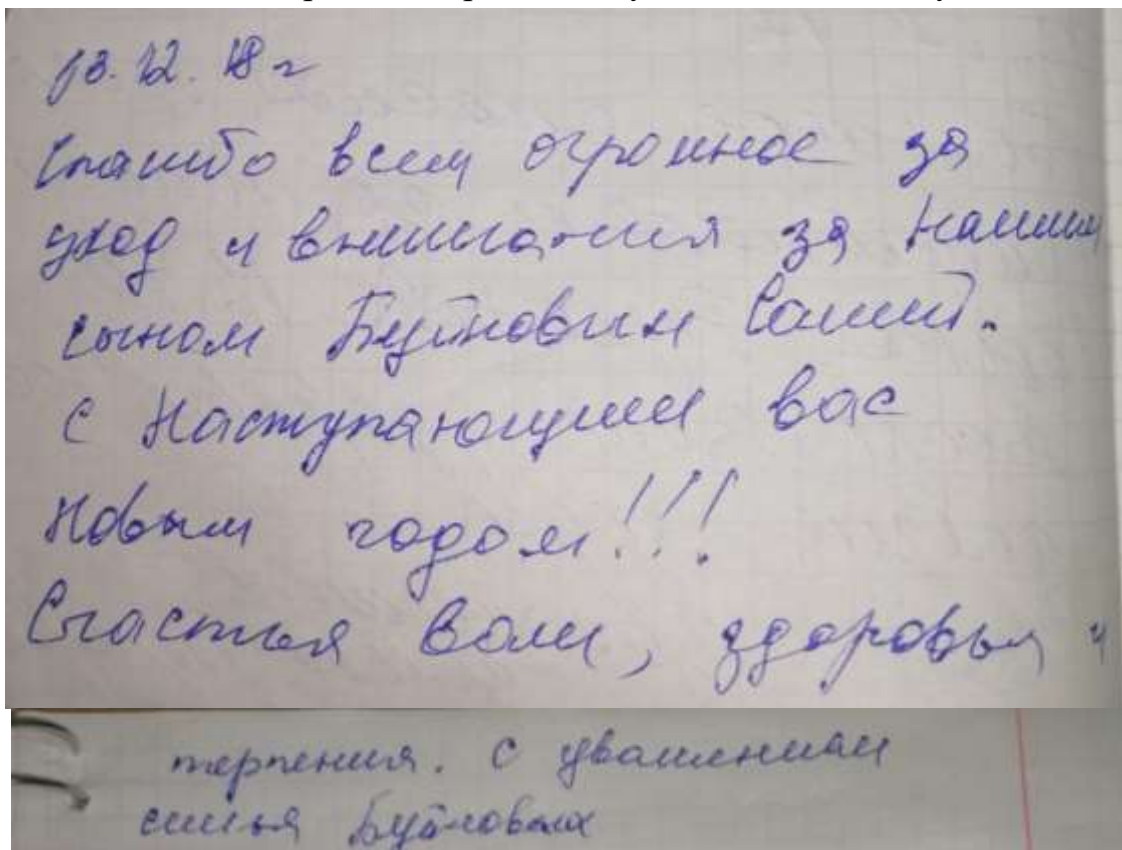 13.12.18 г
Спасибо всем огромное за
уход и внимания за нашим
сыном Буйновым Сашей.
С Наступающим вас
Новым годом!!!
Счастья вам, здоровья и
терпения. С уважением
семья Буйновых